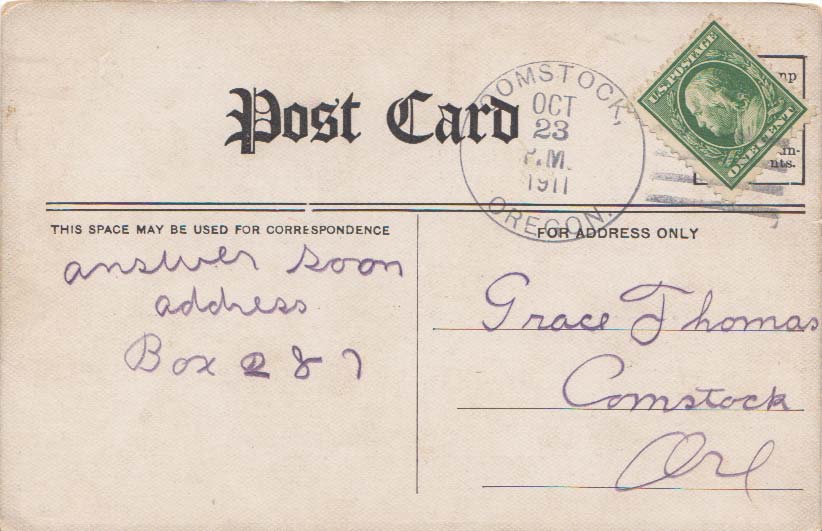 Post Card
COMSTOCK,
OCT
23
P.M.
1911
OREGON.
U.S. POSTAGE
ONE CENT
THIS SPACE MAY BE USED FOR CORRESPONDENCE
FOR ADDRESS ONLY
answer soon
address
Box 287
Grace Thomas
Comstock
Ore